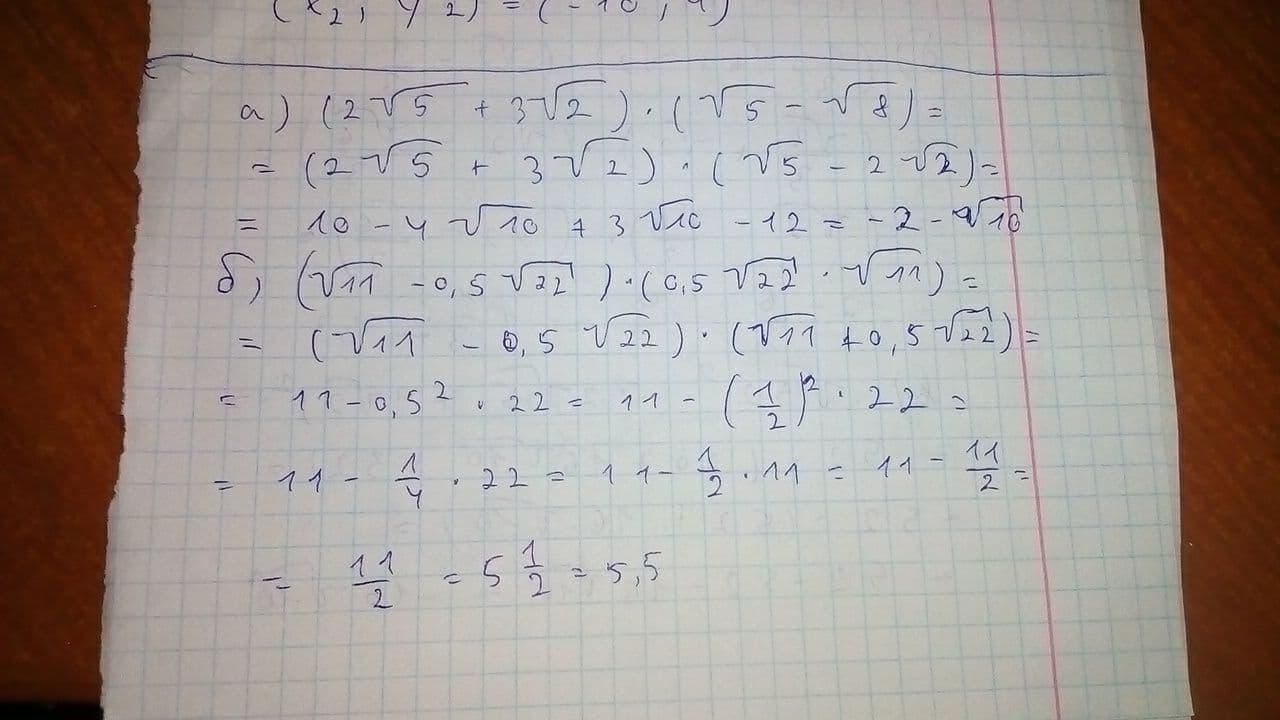 (x₂, y₂) = (-10, 4)
а) (2√5 + 3√2) · (√5 - √8) =
= (2√5 + 3√2) · (√5 - 2√2) =
= 10 - 4√10 + 3√10 - 12 = -2 - √10
б) (√11 - 0,5√22) · (0,5√22 · √11) =
= (√11 - 0,5√22) · (√11 + 0,5√22) =
= 11 - 0,5² · 22 = 11 - (1/2)² · 22 =
= 11 - 1/4 · 22 = 11 - 1/2 · 11 = 11 - 11/2 =
= 11/2 = 5 1/2 = 5,5